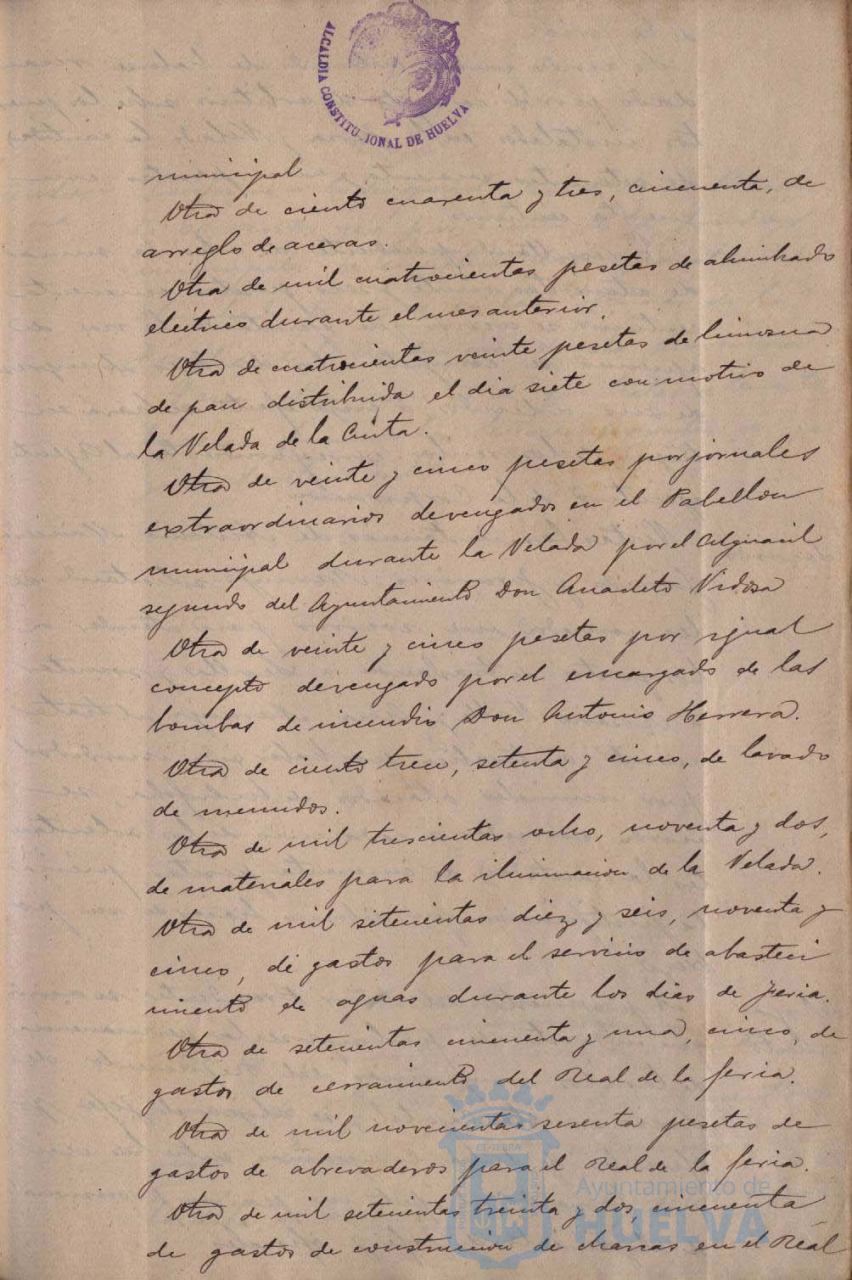 ALCALDIA CONSTITUCIONAL DE HUELVA
municipal
Otra de ciento cuarenta y tres, cincuenta, de
arreglo de aceras.
Otra de mil cuatrocientas pesetas de alumbrado
eléctrico durante el mes anterior.
Otra de cuatrocientas veinte pesetas de limosna
de pan distribuida el dia siete con motivo de
la Velada de la Cinta.
Otra de veinte y cinco pesetas por jornales
extraordinarios devengados en el Pabellon
municipal durante la Velada por el Alguacil
segundo del Ayuntamiento Don Anacleto Vidosa
Otra de veinte y cinco pesetas por igual
concepto devengado por el encargado de las
bombas de incendio Don Antonio Herrera.
Otra de ciento trece, setenta y cinco, de lavado
de menudos.
Otra de mil trescientas ocho, noventa y dos,
de materiales para la iluminacion de la Velada.
Otra de mil setecientas diez y seis, noventa y
cinco, de gastos para el servicio de abasteci
miento de aguas durante los dias de feria.
Otra de setecientas cincuenta y una, cinco, de
gastos de cerramiento del Real de la feria.
Otra de mil novecientas sesenta pesetas de
gastos de abrevaderos para el Real de la feria.
Otra de mil setecientas treinta y dos, cincuenta
de gastos de construccion de charcas en el Real
Ayuntamiento de
HUELVA